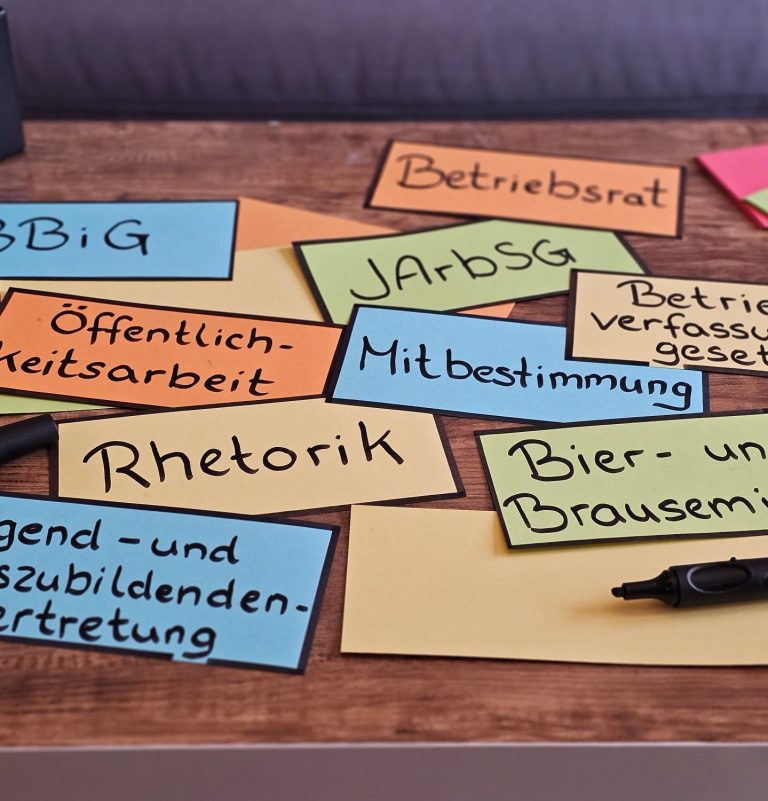 Betriebsrat
BBiG
JArbSG
Betrie
verfassu
geset
Öffentlich-
keitsarbeit
Mitbestimmung
Rhetorik
Bier- un
Brausemi
gend-und
szubildenden-
ertretung